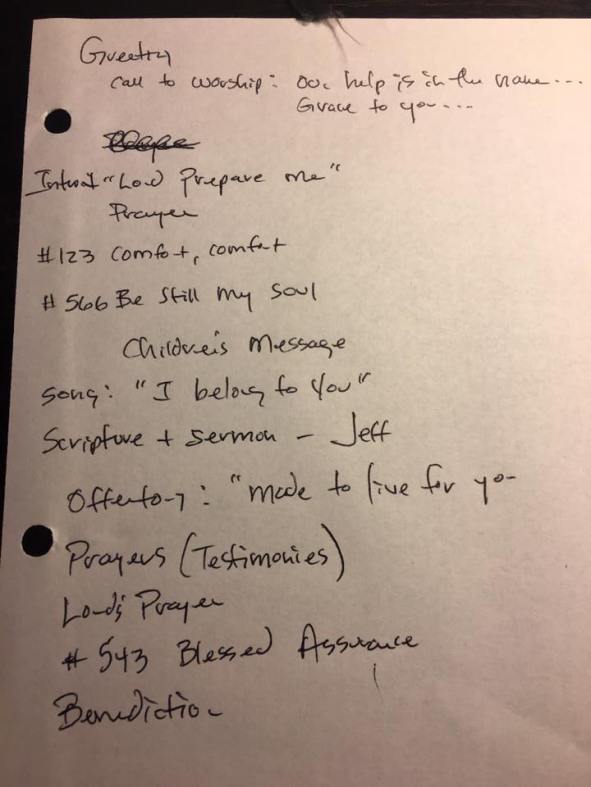 Greeting
Call to worship: Our help is in the name...
Grace to you...
Introit "Lord Prepare me"
Prayer
#123 Comfort, comfort
#566 Be Still My Soul
Children's Message
Song: "I belong to You"
Scripture + Sermon - Jeff
Offertory: "Made to live for you
Prayers (Testimonies)
Lord's Prayer
#543 Blessed Assurance
Benediction